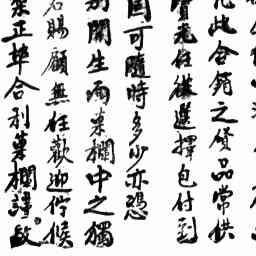 此合銷之貨品常供
任從選擇包付到
可隨時多少亦憑
別開生面菓欄中之獨
賜顧無任歡迎佇候
正埠合利菓欄謹啟。